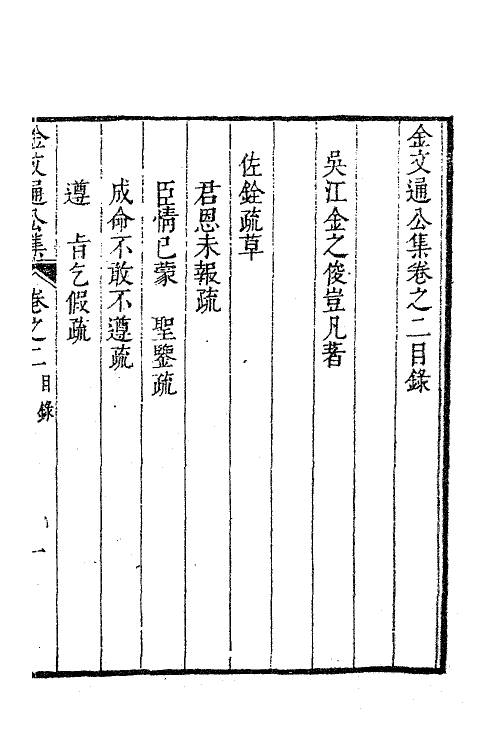 金文通公集卷之二目錄
吳江金之俊豈凡著
佐銓疏草
君恩未報疏
臣情已蒙　聖鑒疏
成命不敢不遵疏
遵　旨乞假疏
金文通公集　卷之二　目錄　一